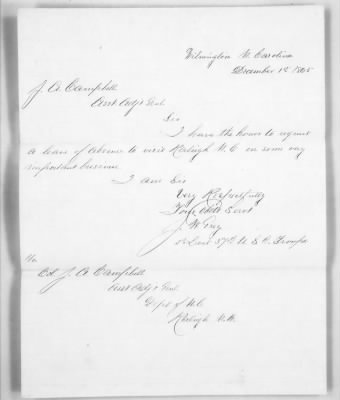 Wilmington N. Carolina
December 1st 1865
J. A. Campbell
Asst Adjt Genl.
Sir
I have the honor to request
a leave of absence to visit Raleigh N.C on some very
important business
I am Sir
Very Respectfully
Your Obdt Servt
J. W.
1st Lieut 37th U. S. C. Troops
To
Col. J. A. Campbell
Asst Adjt Genl.
Dept of N.C.
Raleigh N.C.